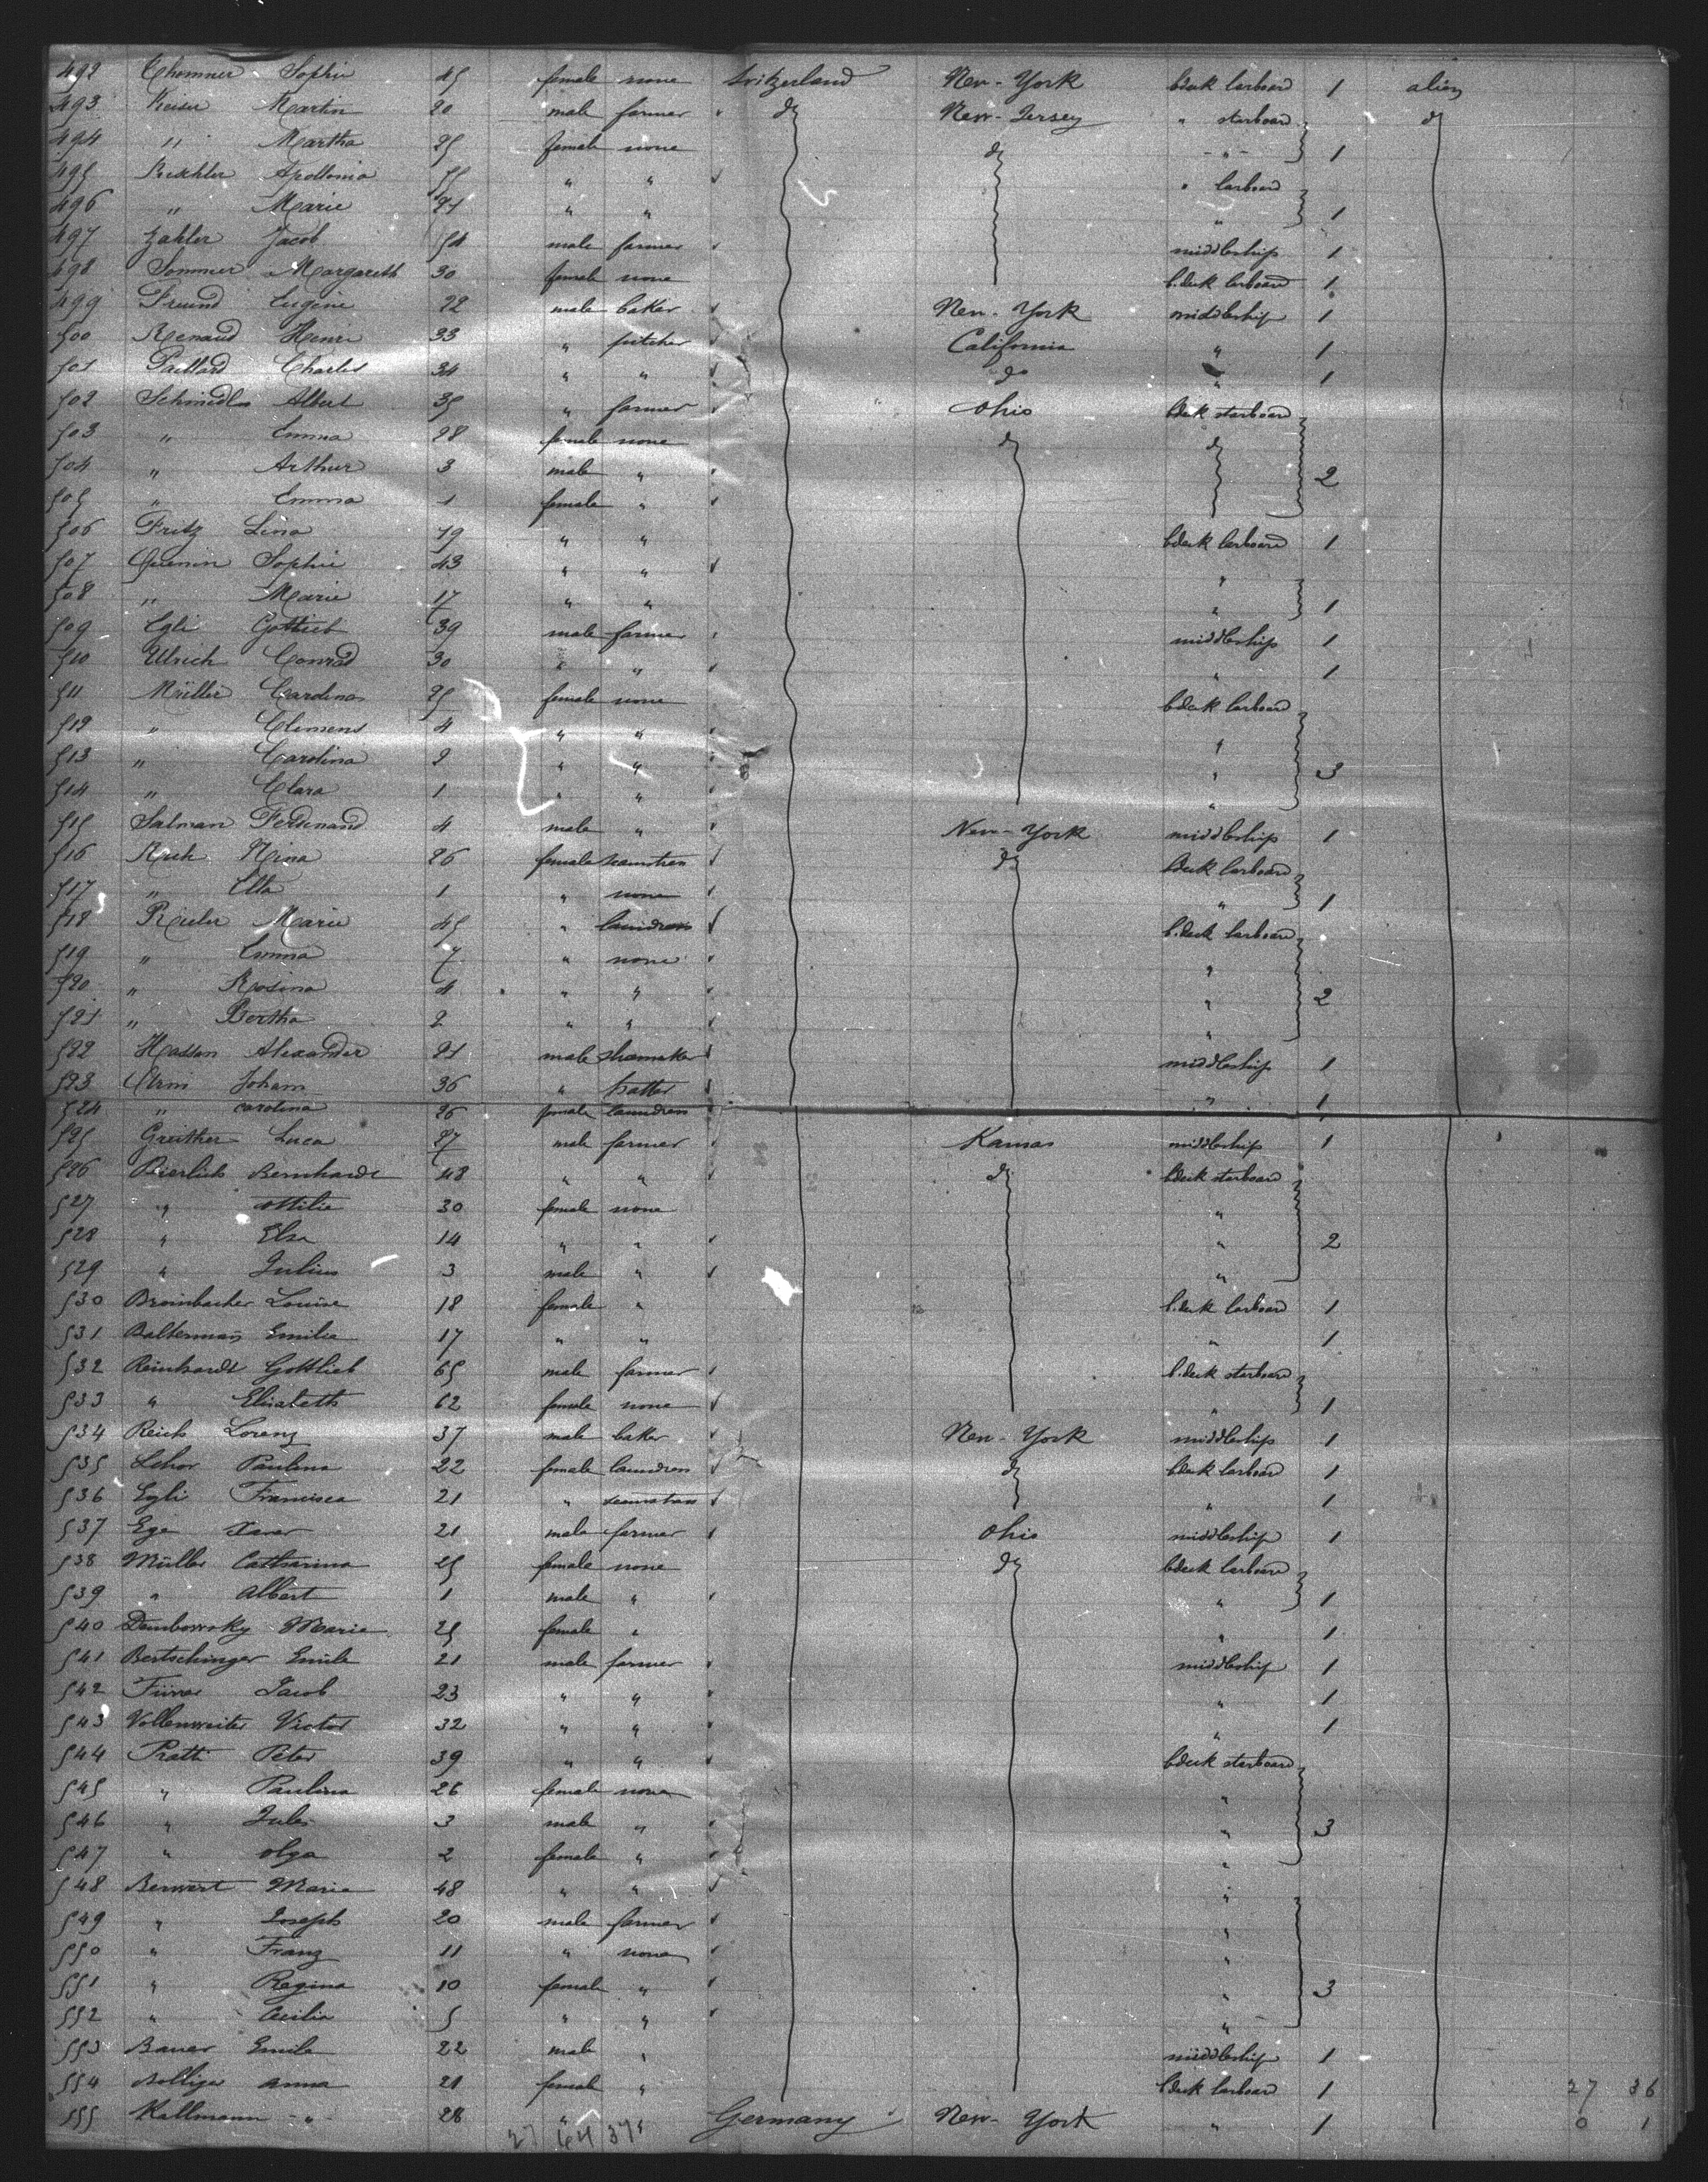 492 Chomner Sophie 45 female none Switzerland New-York bdeck larboard 1 alien
493 Keiser Martin 20 male farmer do New-Jersey " starboard do
494 " Martha 25 female none do - " - 1
495 Appollonia 55 " " " larboard
496 " Marie 21 " " " 1
497 Zahler Jacob 54 male farmer middleship 1
498 Sommer Margareth 30 female none b.deck larboard 1
499 Freund Eugene 22 male baker New-York middleship 1
500 Renaud Henri 33 " California " 1
501 Paillard Charles 34 " " do " 1
502 Schmiedlin Albert 35 " farmer Ohio bdeck starboard
503 " Emma 28 female none do do
504 " Arthur 3 male " 2
505 " Emma 1 female "
506 Fritz Lina 19 " " bdeck larboard 1
507 Quenin Sophie 43 " " "
508 " Marie 17 " " " 1
509 Egli Gottlieb 39 male farmer middleship 1
510 Ulrich Conrad 30 " " " 1
511 Müller Carolina 25 female none bdeck larboard
512 " Clemens 4 " " "
513 " Carolina 2 " " " 3
514 " Clara 1 " " "
515 Salman Ferdinand 4 male " New-York middleship 1
516 Nina 26 female seamstress do bdeck larboard
517 " Etta 1 " none " 1
518 Marie 45 " laundress b.deck larboard
519 " Emma 7 " none "
520 " Rosina 4 " " " 2
521 " Bertha 2 " " "
522 Alexander 21 male shoemaker middleship 1
523 Johann 36 " hatter " 1
524 " Carolina 26 female laundress
525 Greither Luca 27 male farmer Kansas middleship 1
526 Bierlich Bernhardt 43 " " do bdeck starboard
527 " Ottilie 30 female none "
528 " Elsa 14 " " " 2
529 " Julius 3 male " "
530 Brombacher Louise 18 female " b.deck larboard 1
531 Balterman Emilie 17 " " " 1
532 Reinhardt Gottlieb 65 male farmer b.deck starboard
533 " Elisabeth 62 female none " 1
534 Reich Lorenz 37 male baker New-York middleship 1
535 Paulina 22 female laundress do bdeck larboard 1
536 Egli Francisca 21 " seamstress " 1
537 Ege Xaver 21 male farmer Ohio middleship 1
538 Müller Catharina 25 female none do bdeck larboard
539 " Albert 1 male " " 1
540 Dembowsky Marie 25 female " " 1
541 Bertschinger Emile 21 male farmer middleship 1
542 Jacob 23 " " " 1
543 Vollenweiter Victor 32 " " " 1
544 Pratti Peter 39 " " bdeck starboard
545 " Paulina 26 female none "
546 " Jules 3 male " " 3
547 " Olga 2 female " "
548 Berwert Marie 48 " " "
549 " Joseph 20 male farmer "
550 " Franz 11 " none "
551 " Regina 10 female " " 3
552 " Cecilia 5 " " "
553 Bauer Emile 22 male " middleship 1
554 Bolliger Anna 21 female " bdeck larboard 1 27 36
555 Kallmann - " - 28 " Germany New-York " 1 0 1
27 64 37